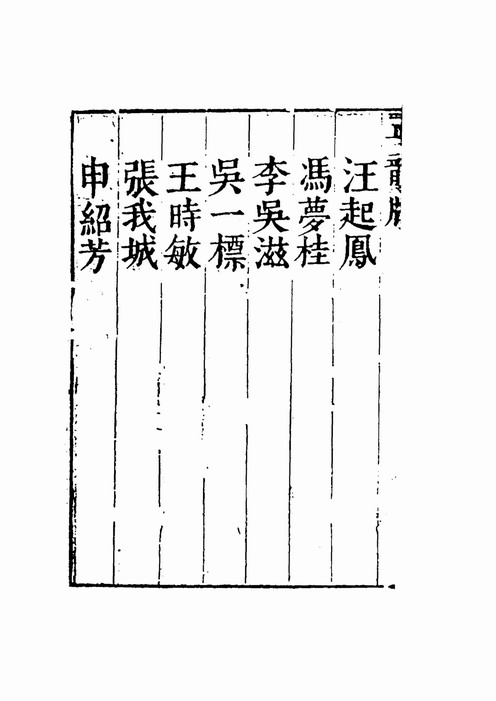 汪起鳳
馮夢桂
李吳滋
吳一標
王時敏
張我城
申紹芳